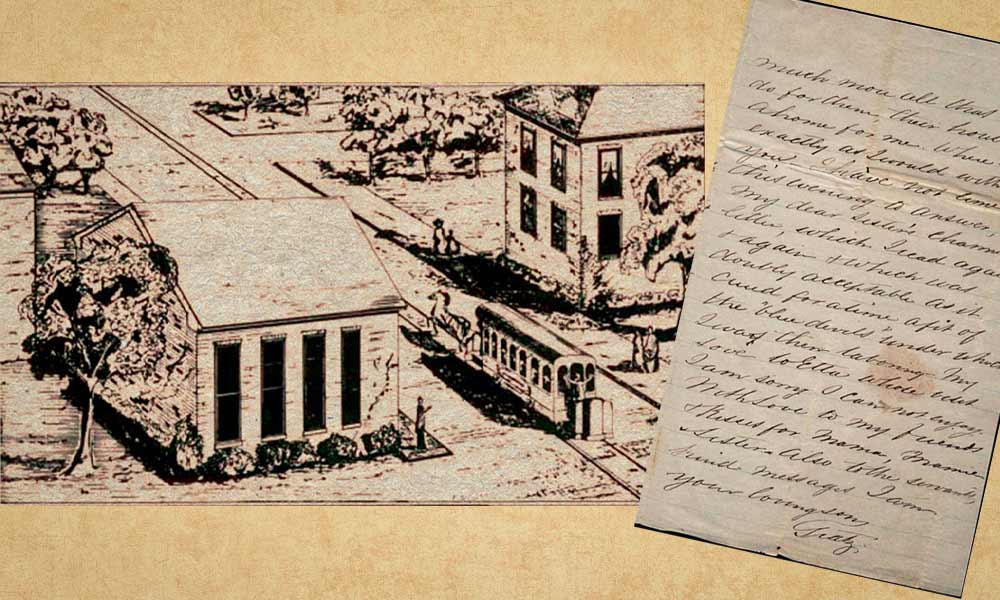 much more all that
do for them their hous
a home for me. Where
exactly as would with
you. I have not time
this evening to answer
my dear Sister's charm
letter which I read again
& again & which was
doubly acceptable as it
cured for a time a fit of
the "blue devils" under which
I was then laboring. My
love to Ella whose visit
I am sorry I can not enjoy.
With love to my friends
& kisses for Mama, Mamie
& Sister. Also to the servants,
kind messages I am
your loving son,